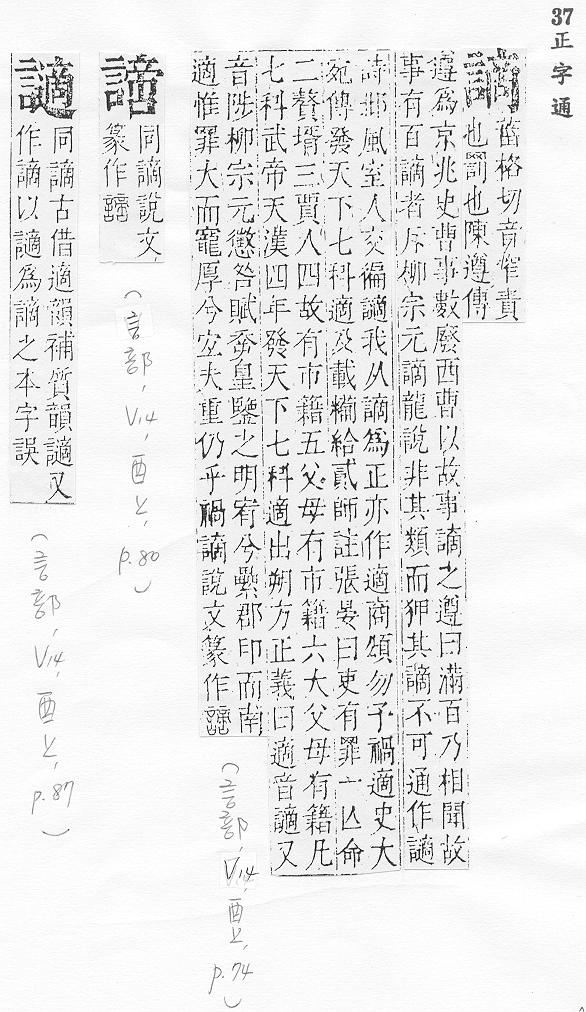 37 正字通
謫
菑格切音窄責
也罰也陳遵傳
遵為京兆史曹事數廢西曹以故事謫之遵曰滿百乃相聞故
事有百謫者斥柳宗元謫龍說非其類而狎其謫不可通作讁
詩邶風室人交徧讁我从謫為正亦作適商頌勿予禍適史大
宛傳發天下七科適及載糒給貳師註張晏曰吏有罪一亾命
二贅壻三賈人四故有市籍五父母有市籍六大父母有籍凡
七科武帝天漢四年發天下七科適出朔方正義曰適音讁又
音陟柳宗元懲咎賦蒙皇鑒之明宥兮纍郡印而南
適惟罪大而寵厚兮宜夫重仍乎禍謫說文篆作
(言部, V14, 酉上, p.74)
同謫說文
篆作
(言部, V14, 酉上, p.80)
讁
同謫古借適韻補質韻讁又
作謫以讁為謫之本字誤
(言部, V14, 酉上, p.87)